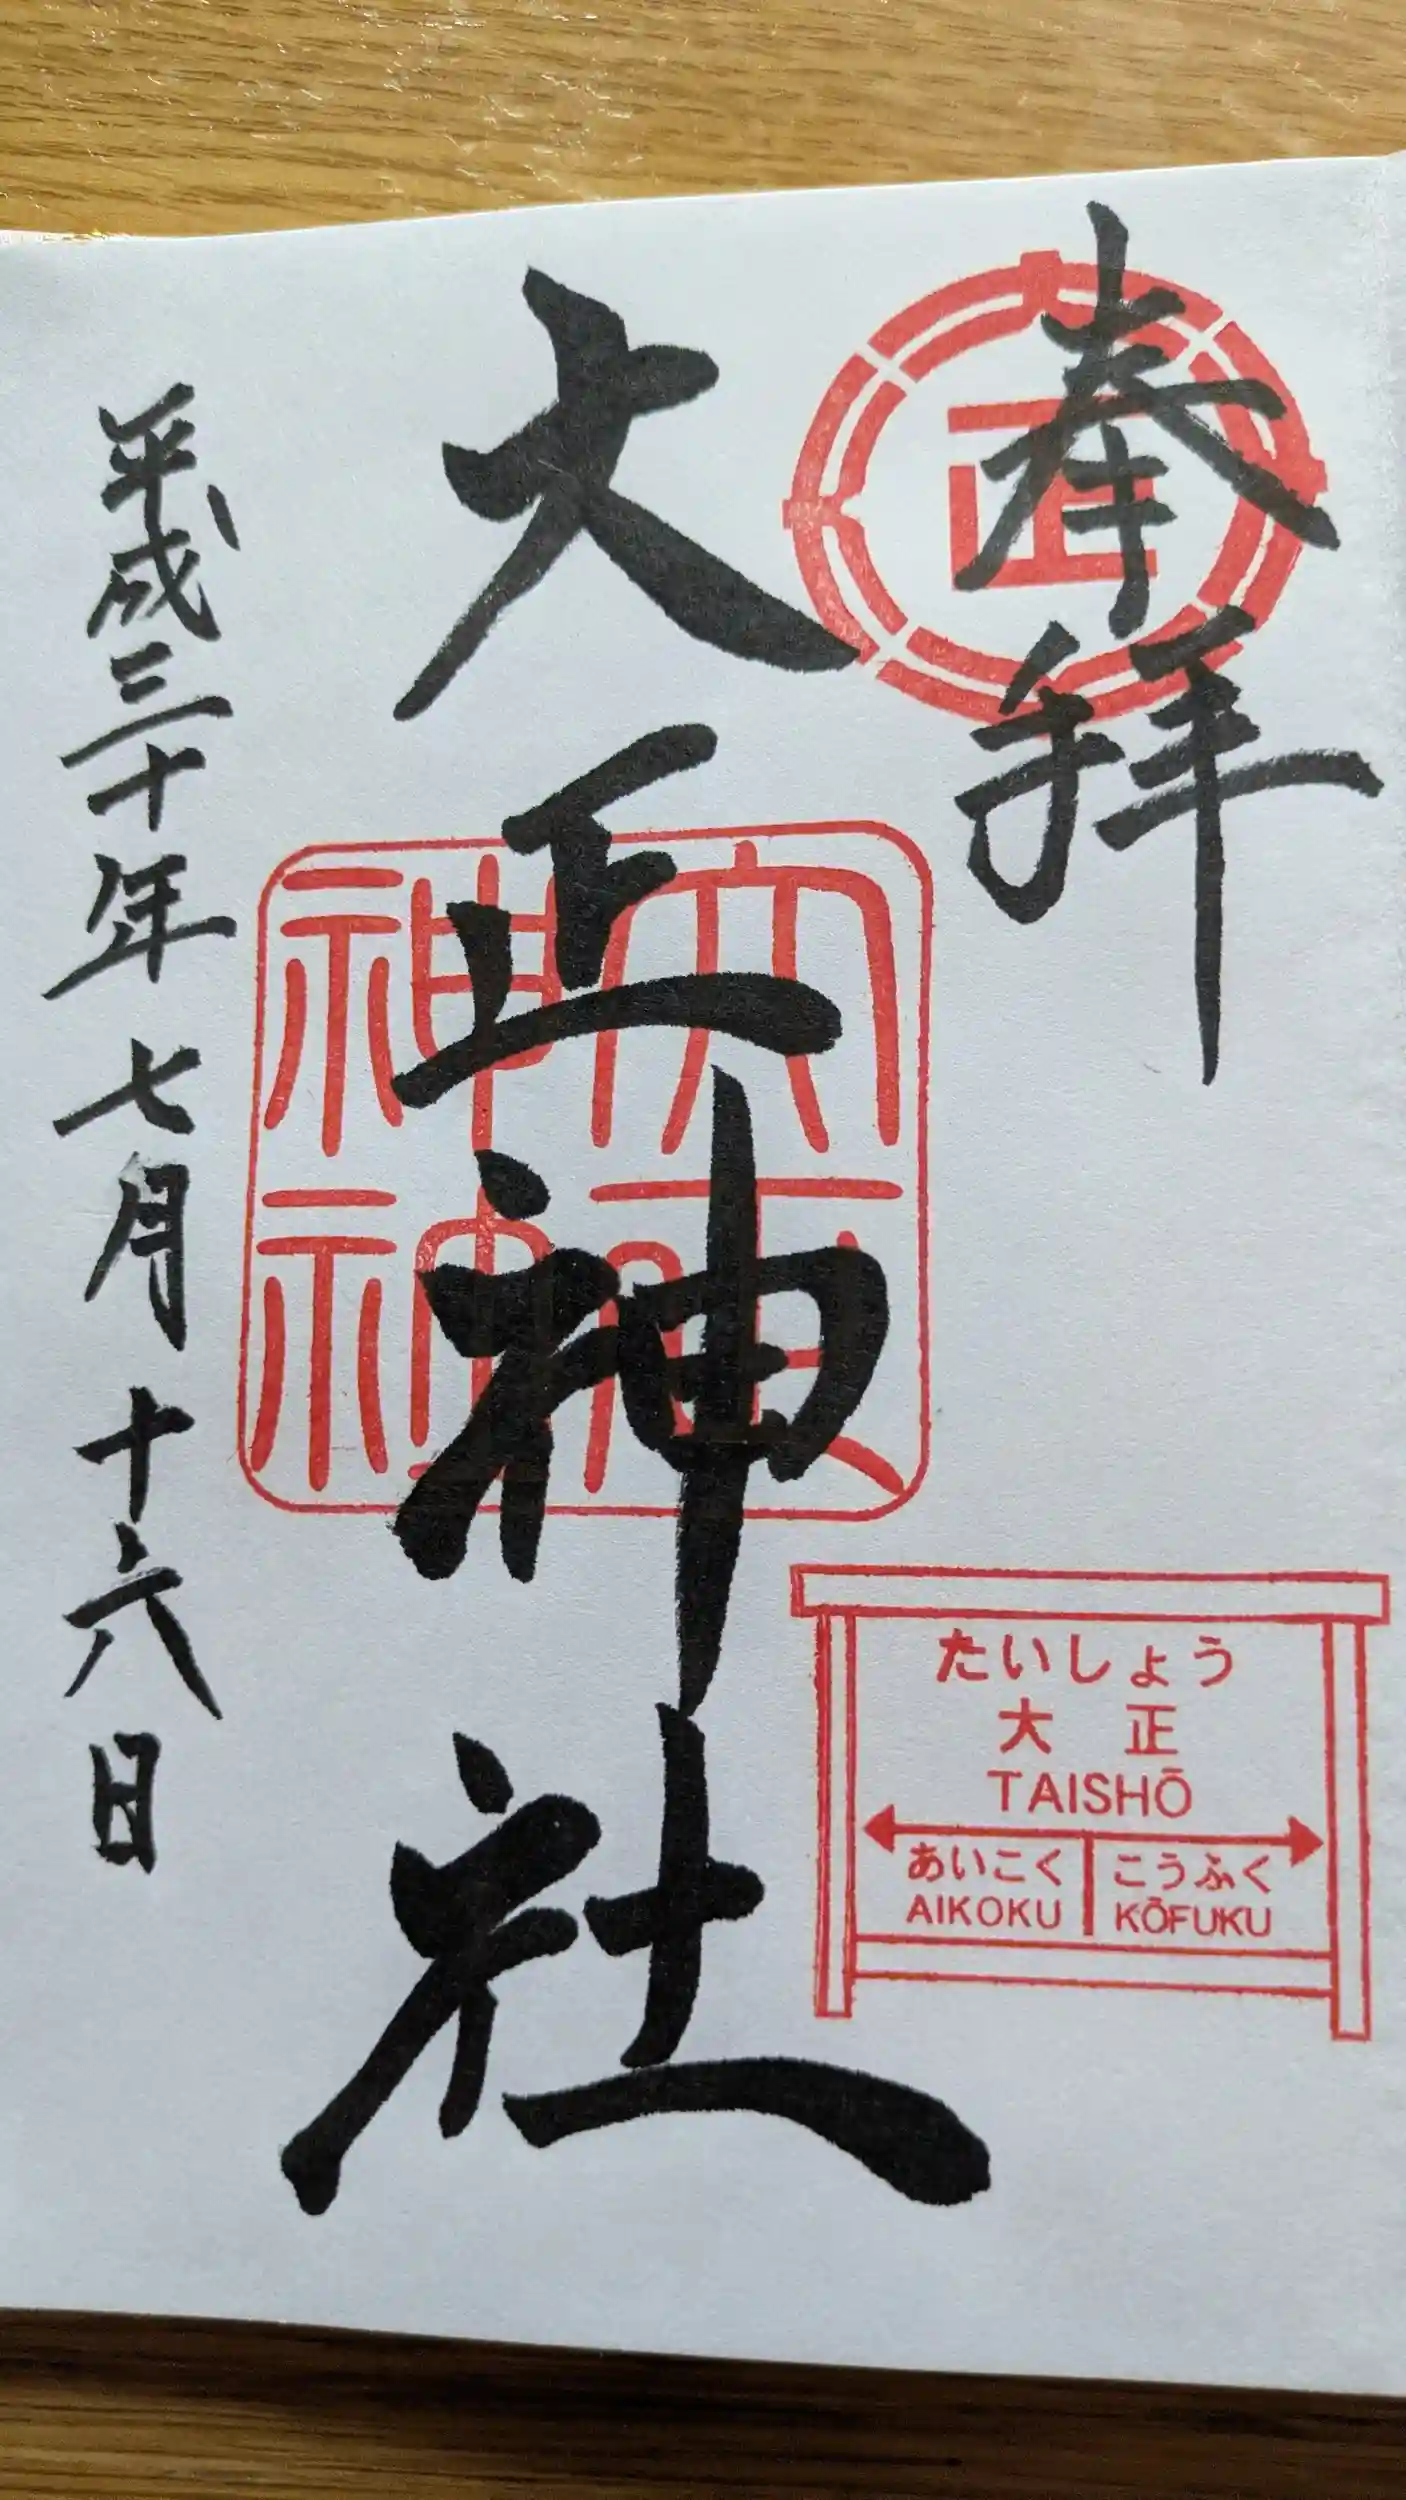 奉拝
正
大正神社
大正
神社
平成三十年七月十六日
たいしょう
大正
TAISHŌ
あいこく こうふく
AIKOKU KŌFUKU